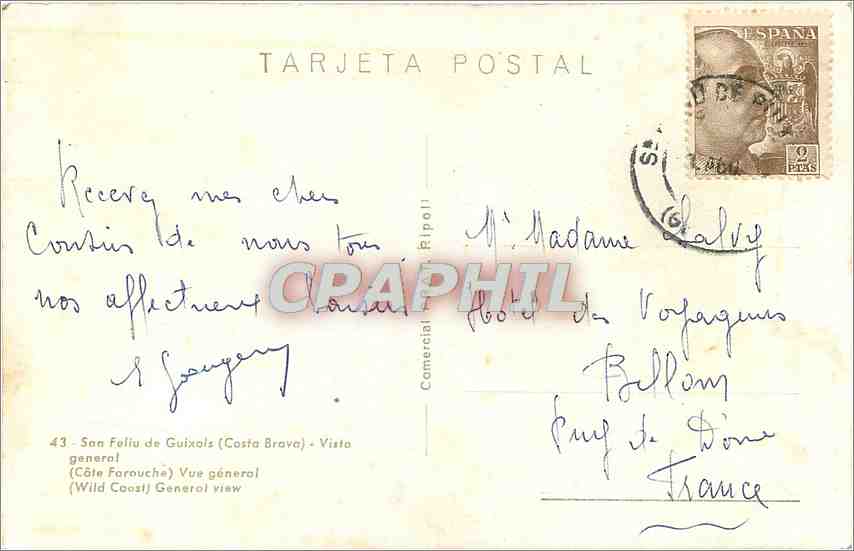 TARJETA POSTAL
ESPAÑA
2
PTAS
Recevez mes chers
Cousins de nous tous
nos affectueux baisers
Mr Madame Salvy
Hôtel des Voyageurs
Billom
Puy de Dôme
France
CPAPHIL
Comercial Ripoll
43 - San Feliu de Guixols (Costa Brava) - Vista
general
(Côte Farouche) Vue géneral
(Wild Coast) General view